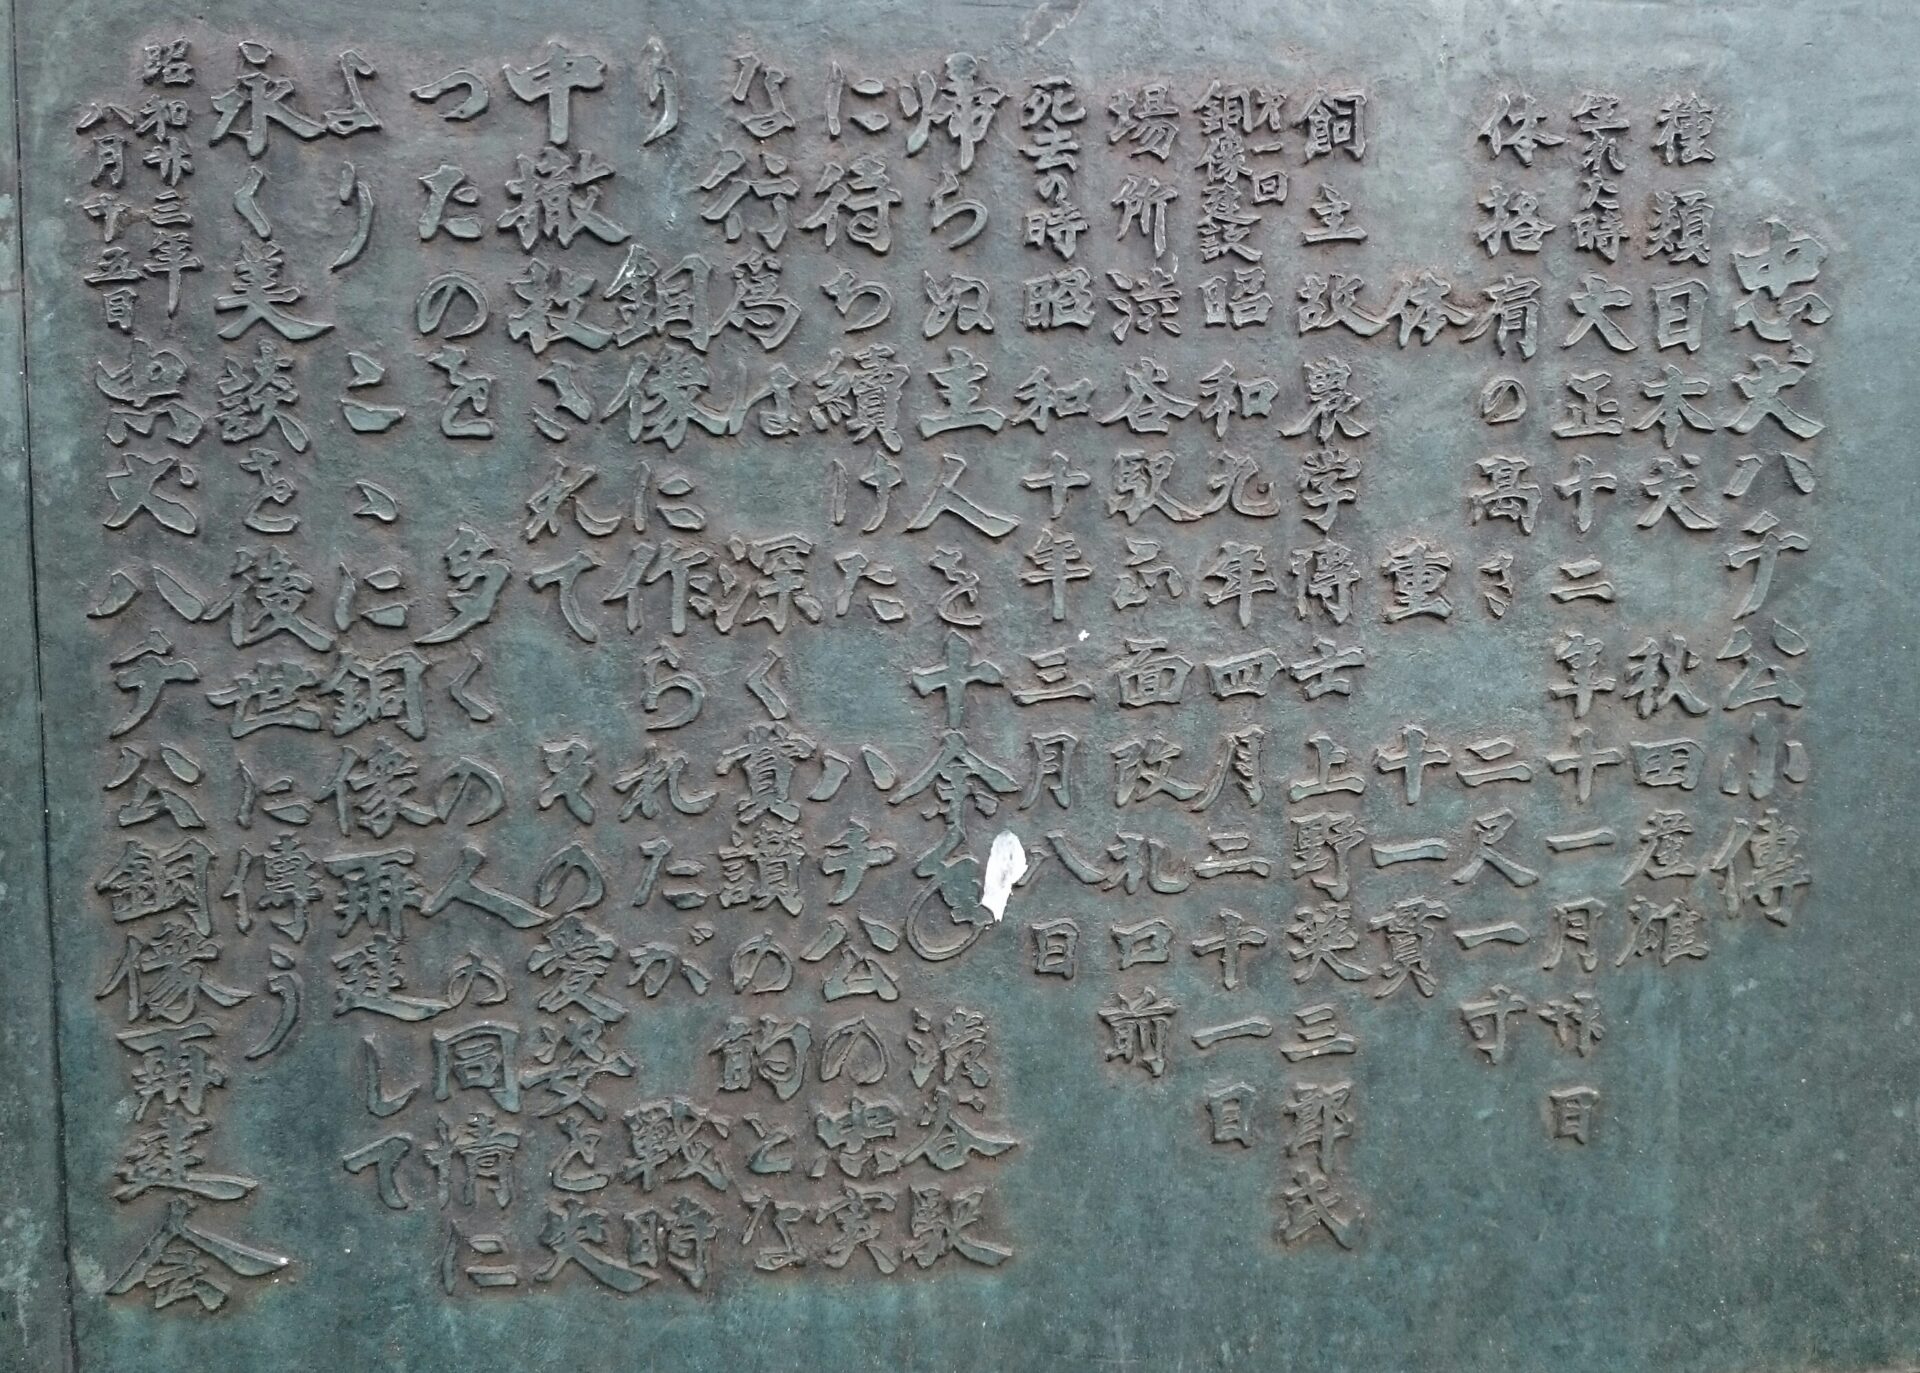 忠犬ハチ公小傳
種類日本犬 秋田産雄
生れた時大正十二年十一月廿日
体格肩の高さ 二尺一寸
体 重 十一貫
飼主故農学博士上野英三郎氏
才一回銅像建設昭和九年四月二十一日
場所渋谷駅正面改札口前
死去の時昭和十年三月八日
帰らぬ主人を十余年 渋谷駅
に待ち續けた ハチ公の忠実
な行爲は 深く賞讃の的とな
り 銅像に作られたが 戦時
中撤赦されて その愛姿を失
つたのを 多くの人の同情に
より こゝに銅像再建して
永く美談を後世に傳う
昭和廿三年八月十五日
忠犬ハチ公銅像再建会